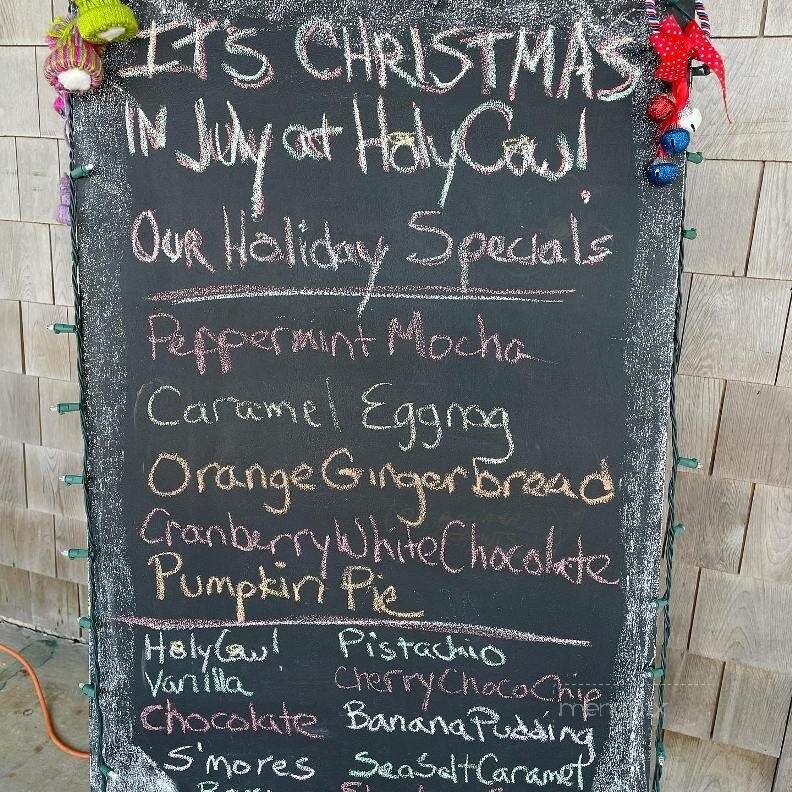 IT'S CHRISTMAS
IN July at Holy Cow!
Our Holiday Specials
Peppermint Mocha
Caramel Eggnog
Orange Gingerbread
Cranberry White Chocolate
Pumpkin Pie
Holy Cow! Pistachio
Vanilla Cherry Choco Chip
Chocolate Banana Pudding
S'mores Sea Salt Caramel